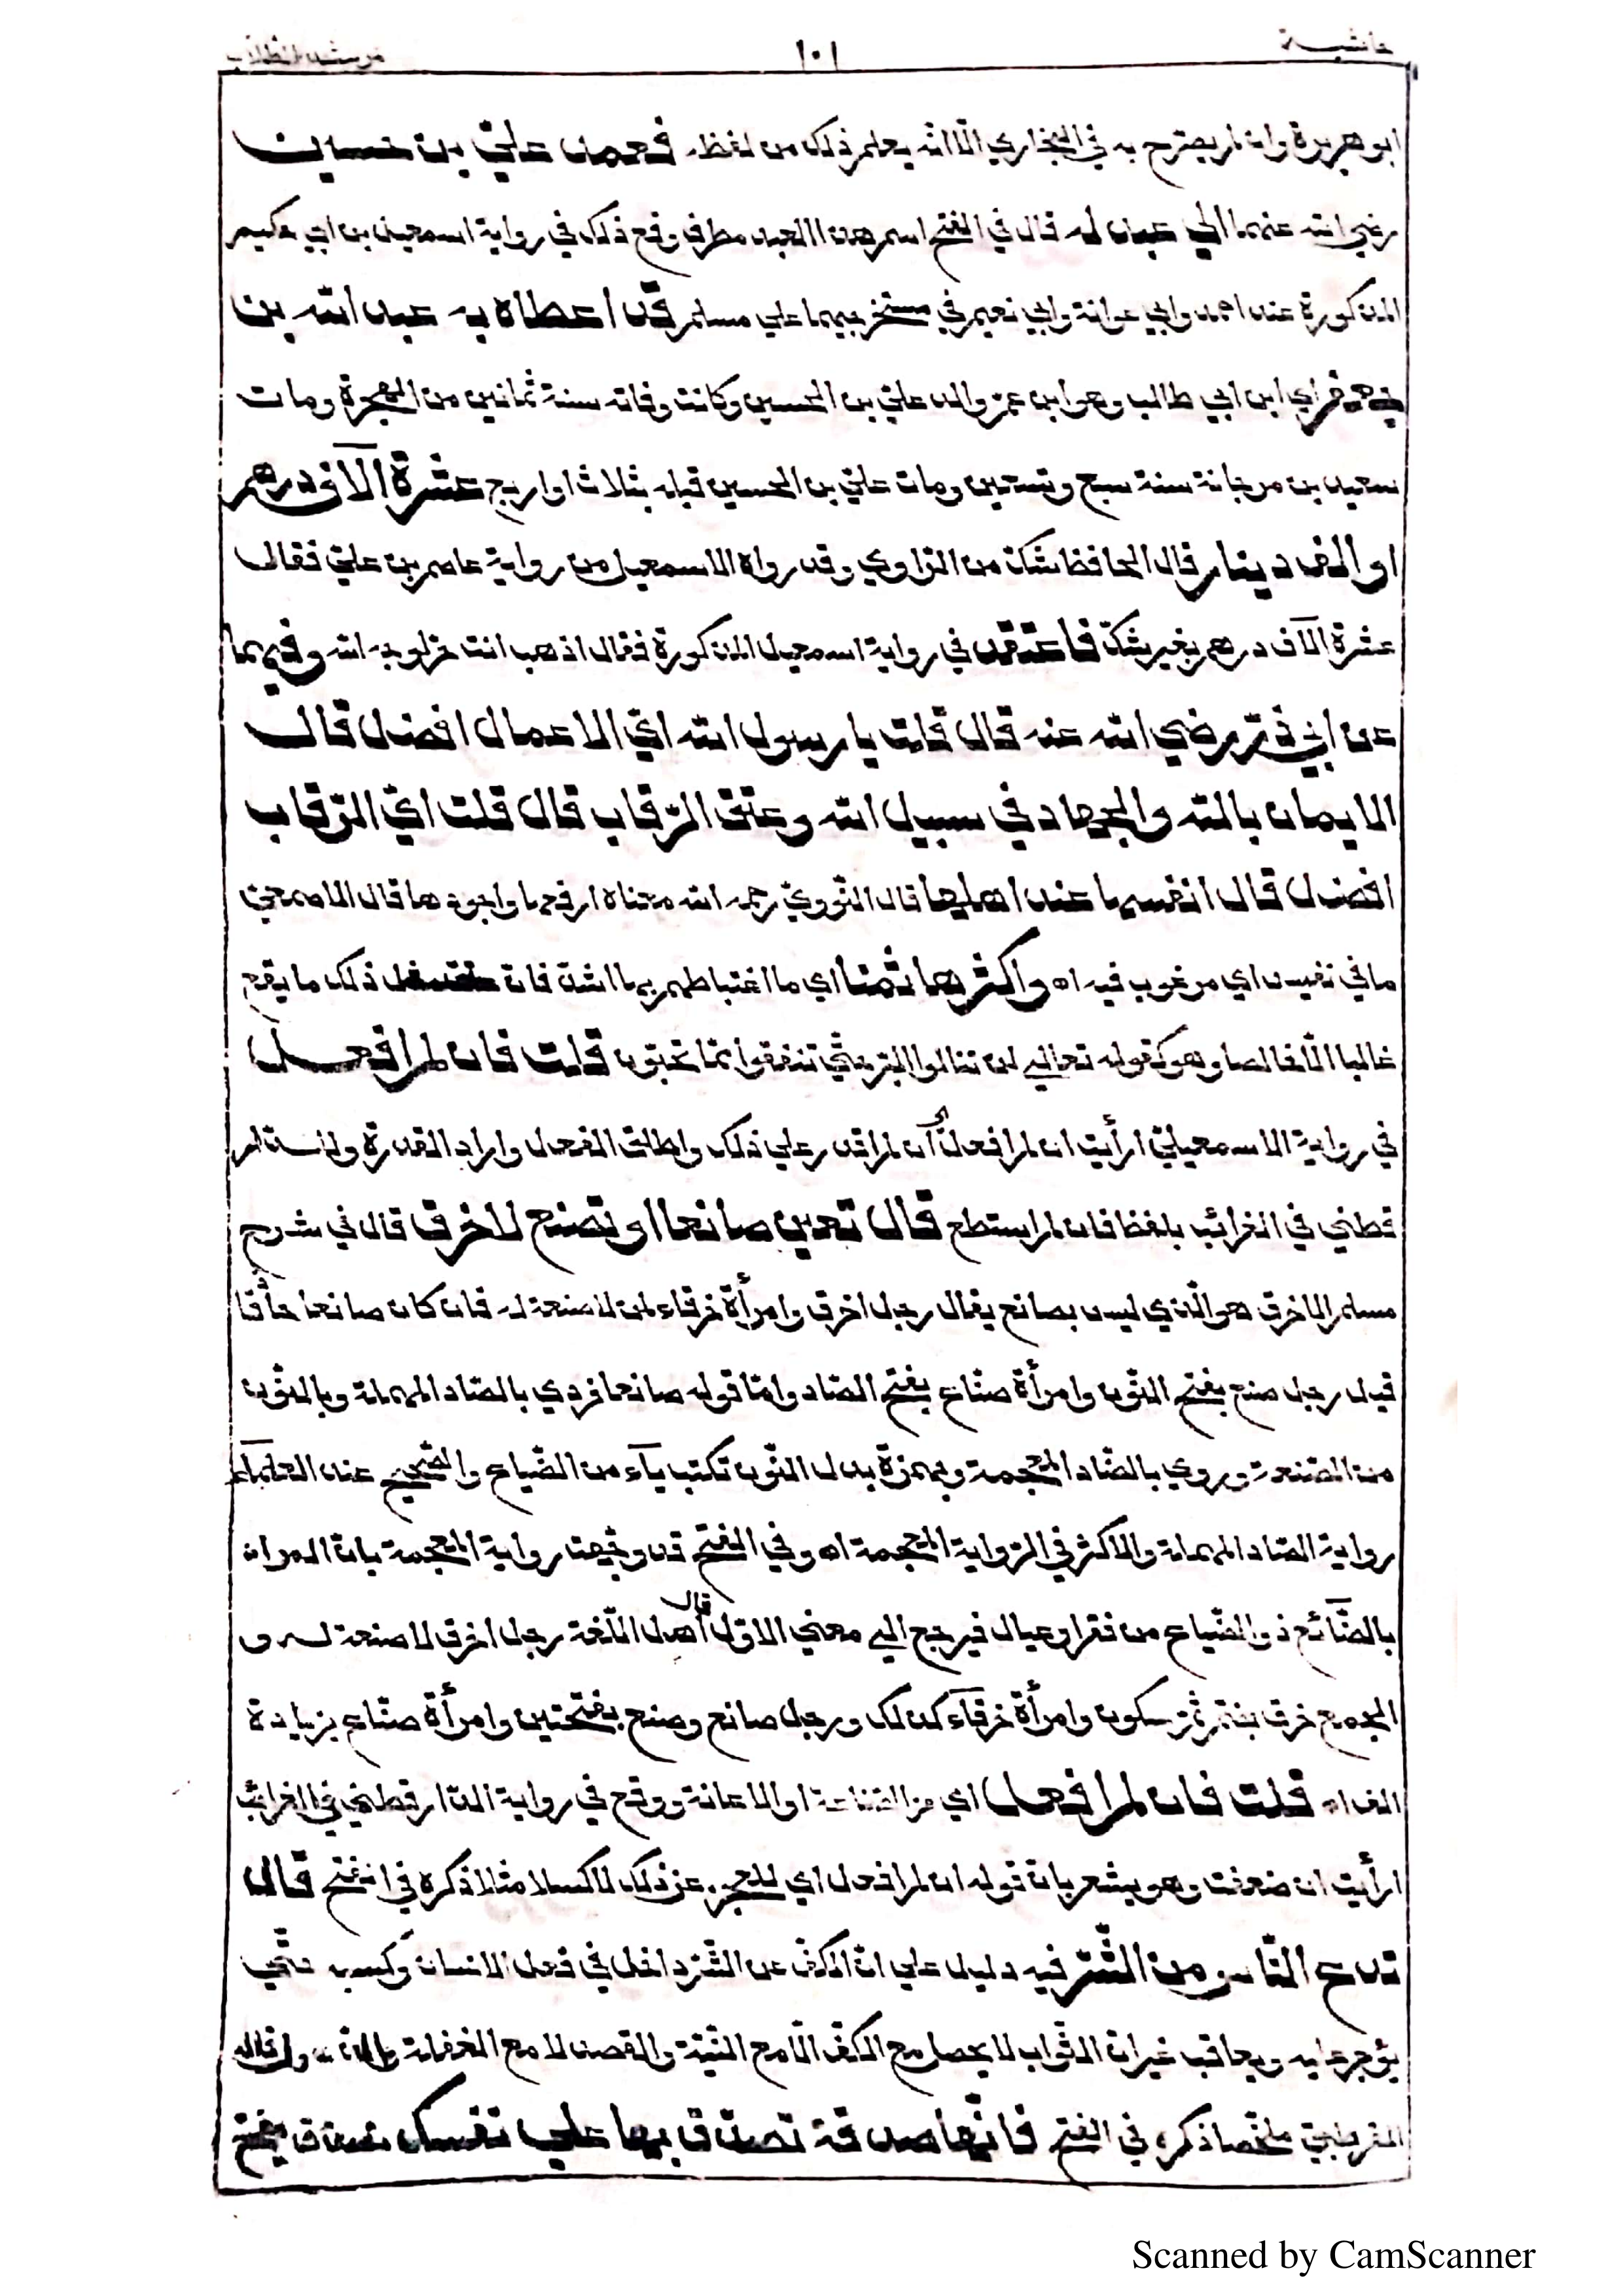 حاشية ١٠١ مرشد الطلاب
ابو هريرة وان لم يصترح به في البخاري الّا انّه يعلم ذلك من لفظه فعمد عليّ بن حسين
رضي الله عنهما الي عبد له قال في الفتح اسم هذا العبد مطرف وقع ذلك في رواية اسمعيل بن ابي حكيم
المذكورة عند احمد وابي عوانة وابي نعيم في مستخرجيهما علي مسلم قد اعطاه به عبد الله بن
جعفر اي ابن ابي طالب وهو ابن عمّ والد عليّ بن الحسين وكانت وفاته سنة ثمانين من الهجرة ومات
سعيد بن مرجانة سنة سبع وتسعين ومات عليّ بن الحسين قبله بثلاث او اربع عشرة آلاف درهم
او الف دينار قال الحافظ شكّ من الرّاوي وقد رواه الاسمعيلي من رواية عاصم بن عليّ فقال
عشرة آلاف درهم بغير شكّ فاعتقه في رواية اسمعيل المذكورة فقال اذهب انت حرّ لوجه الله وفيهما
عن ابي ذرّ رضي الله عنه قال قلت يا رسول الله ايّ الاعمال افضل قال
الايمان بالله والجهاد في سبيل الله وعتق الرّقاب قال قلت ايّ الرّقاب
افضل قال انفسها عند اهلها قال النّوويّ رحمه الله معناه ارفعها واجودها قال الاصمعيّ
ما في نفيس اي مرغوب فيه اه واكثرها ثمنا اي ما اغتباطهم بها اشدّ فانّ ذلك ما يقع
غالبا الّا خالصا وهو كقوله تعالي لن تنالوا البرّ حتّي تنفقوا ممّا تحبّون قلت فان لم افعل
في رواية الاسمعيليّ ارأيت ان لم افعل اي ان لم اقدر علي ذلك واطلق الفعل واراد القدرة وللدار
قطني في الغرائب بلفظ فان لم استطع قال تعين صانعا او تصنع لاخرق قال في شرح
مسلم الاخرق هو الّذي ليس بصانع يقال رجل اخرق وامرأة خرقاء لمن لا صنعة له فان كان صانعا حاذقا
قيل رجل صنع بفتح النّون وامرأة صناع بفتح الصّاد وامّا قوله صانعا فروي بالصّاد المهملة وبالنّون
من الصّنعة وروي بالضّاد المعجمة وبهمزة بدل النّون تكتب ياء من الضّياع والصّحيح عند العلماء
رواية الصّاد المهملة والاكثر في الرّواية المعجمة اه وفي الفتح قد وجّهت رواية المعجمة بانّ المراد
بالضّائع ذو الضّياع من فقر او عيال فيرجع الي معني الاوّل قال اهل اللّغة رجل اخرق لا صنعة له و
الجمع خرق بضمّ ثمّ سكون وامرأة خرقاء كذلك ورجل صانع وصنع بفتحتين وامرأة صناع بزيادة
الف اه قلت فان لم افعل اي من الصّناعة او الاعانة ووقع في رواية الدّارقطني في الغرائب
ارأيت ان ضعفت وهو يشعر بانّ قوله ان لم افعل اي للعجز عن ذلك لا كسلا مثلا ذكره في الفتح قال
تدع النّاس من الشّرّ فيه دليل علي انّ الكفّ عن الشّرّ داخل في فعل الانسان وكسبه حتّي
يؤجر عليه ويعاقب غير انّ الثّواب لا يحصل مع الكفّ الّا مع النّيّة والقصد لا مع الغفلة
القرطبيّ ملخّصا ذكره في الفتح فانّها صدقة تصدّق بها علي نفسك بفتح
Scanned by CamScanner